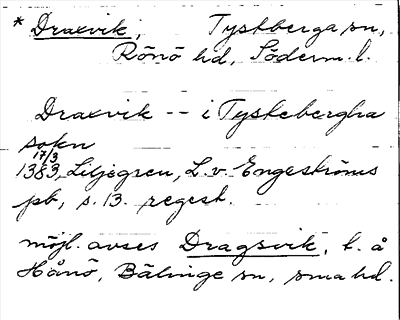 * Draxvik, Tystberga sn,
Rönö hd, Söderm. l.
Draxvik -- i Tyskebergha
sokn
17/3
1383, Liljegren, L. v. Engeströms
pb, s. 13. regest.
möjl. avses Dragsvik, t. å
Hånö, Bälinge sn, sma hd.